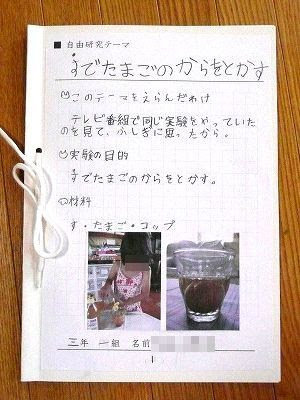 ■自由研究テーマ
すでたまごのからをとかす
このテーマをえらんだわけ
テレビ番組で同じ実験をやっていた
のを見て、ふしぎに思ったから。
実験の目的
すでたまごのからをとかす。
材料
す・たまご・コップ
三年 一組 名前
1